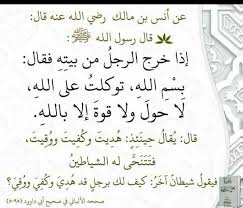 عن أنس بن مالك رضي الله عنه قال:
قال رسول الله ﷺ:
إذا خرج الرجلُ من بيتِهِ فقال:
بِسْمِ الله، توكلتُ على اللهِ،
لَا حولَ ولا قوةَ إلا بالله.
قال: يُقالُ حِينَئذٍ: هُديتَ وكُفيتَ ووُقيتَ،
فتَتَنَحَّى له الشياطينُ
فيقولُ شيطانٌ آخرُ: كيف لك برجلٍ قد هُدِيَ وكُفِيَ ووُقِيَ؟
صححه الألباني في صحيح أبي داود (٥٠٩٥)